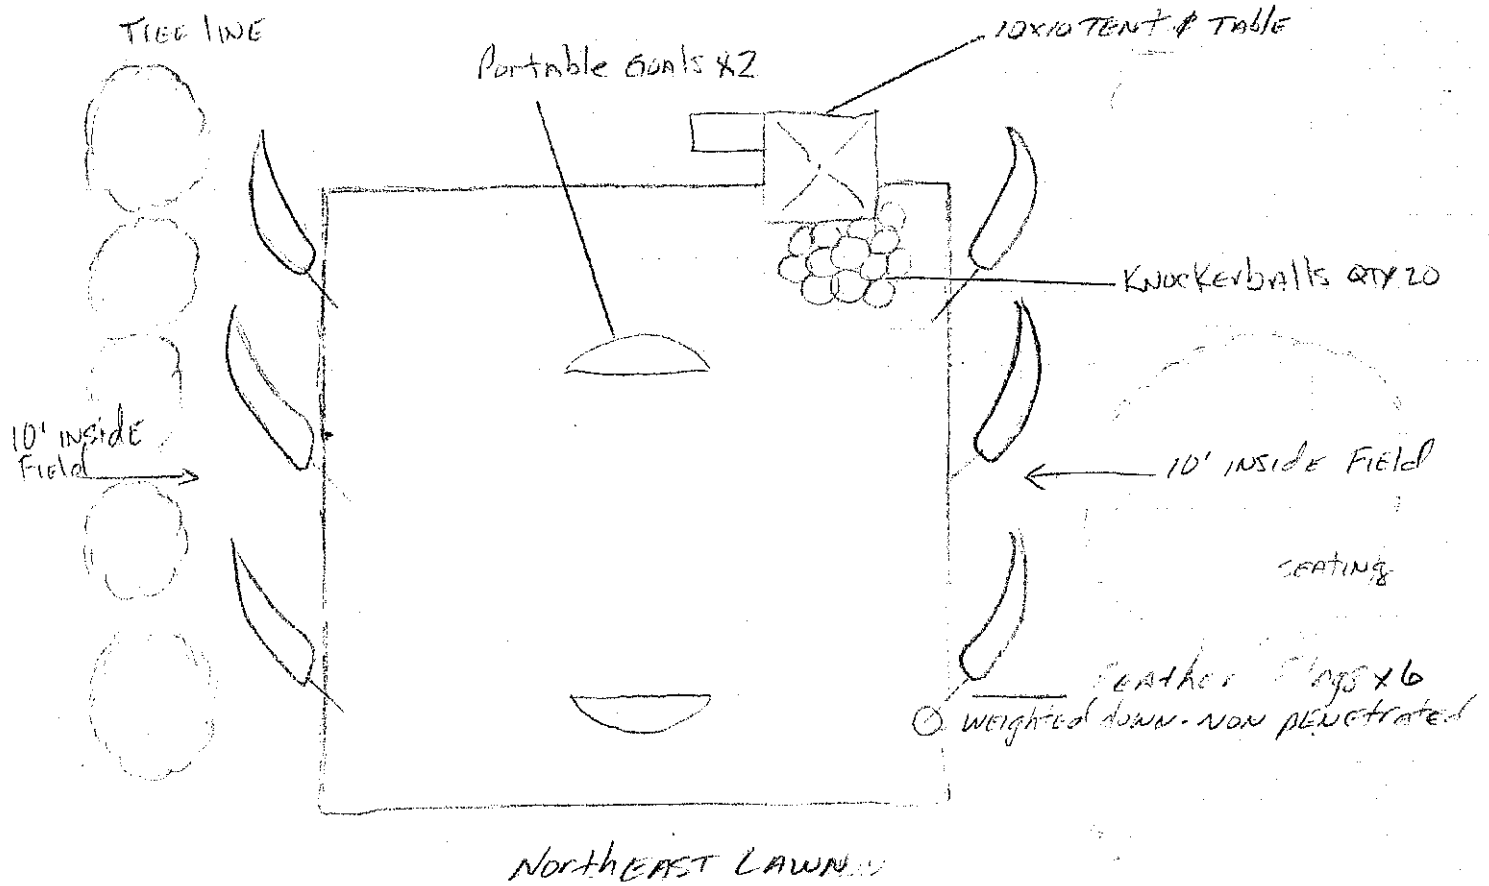 TREE LINE
10X10 TENT & TABLE
Portable GOALS X2
KNOCKERballs QTY 20
10' INSIDE
FIELD
10' INSIDE FIELD
SEATING
FEATHER Flags x6
WEIGHTED DOWN - NON PENETRATED
NORTHEAST LAWN